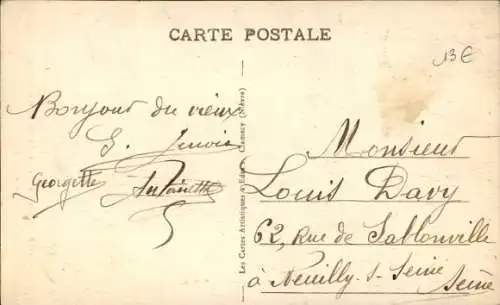 CARTE POSTALE
13€
Bonjour du vieux
G.
Georgette Antoinette
Les Cartes Artistiques d'Edition, Clamecy (Nièvre)
Monsieur
Louis Davy
62, Rue de Sablonville
à Neuilly-s-Seine
Seine